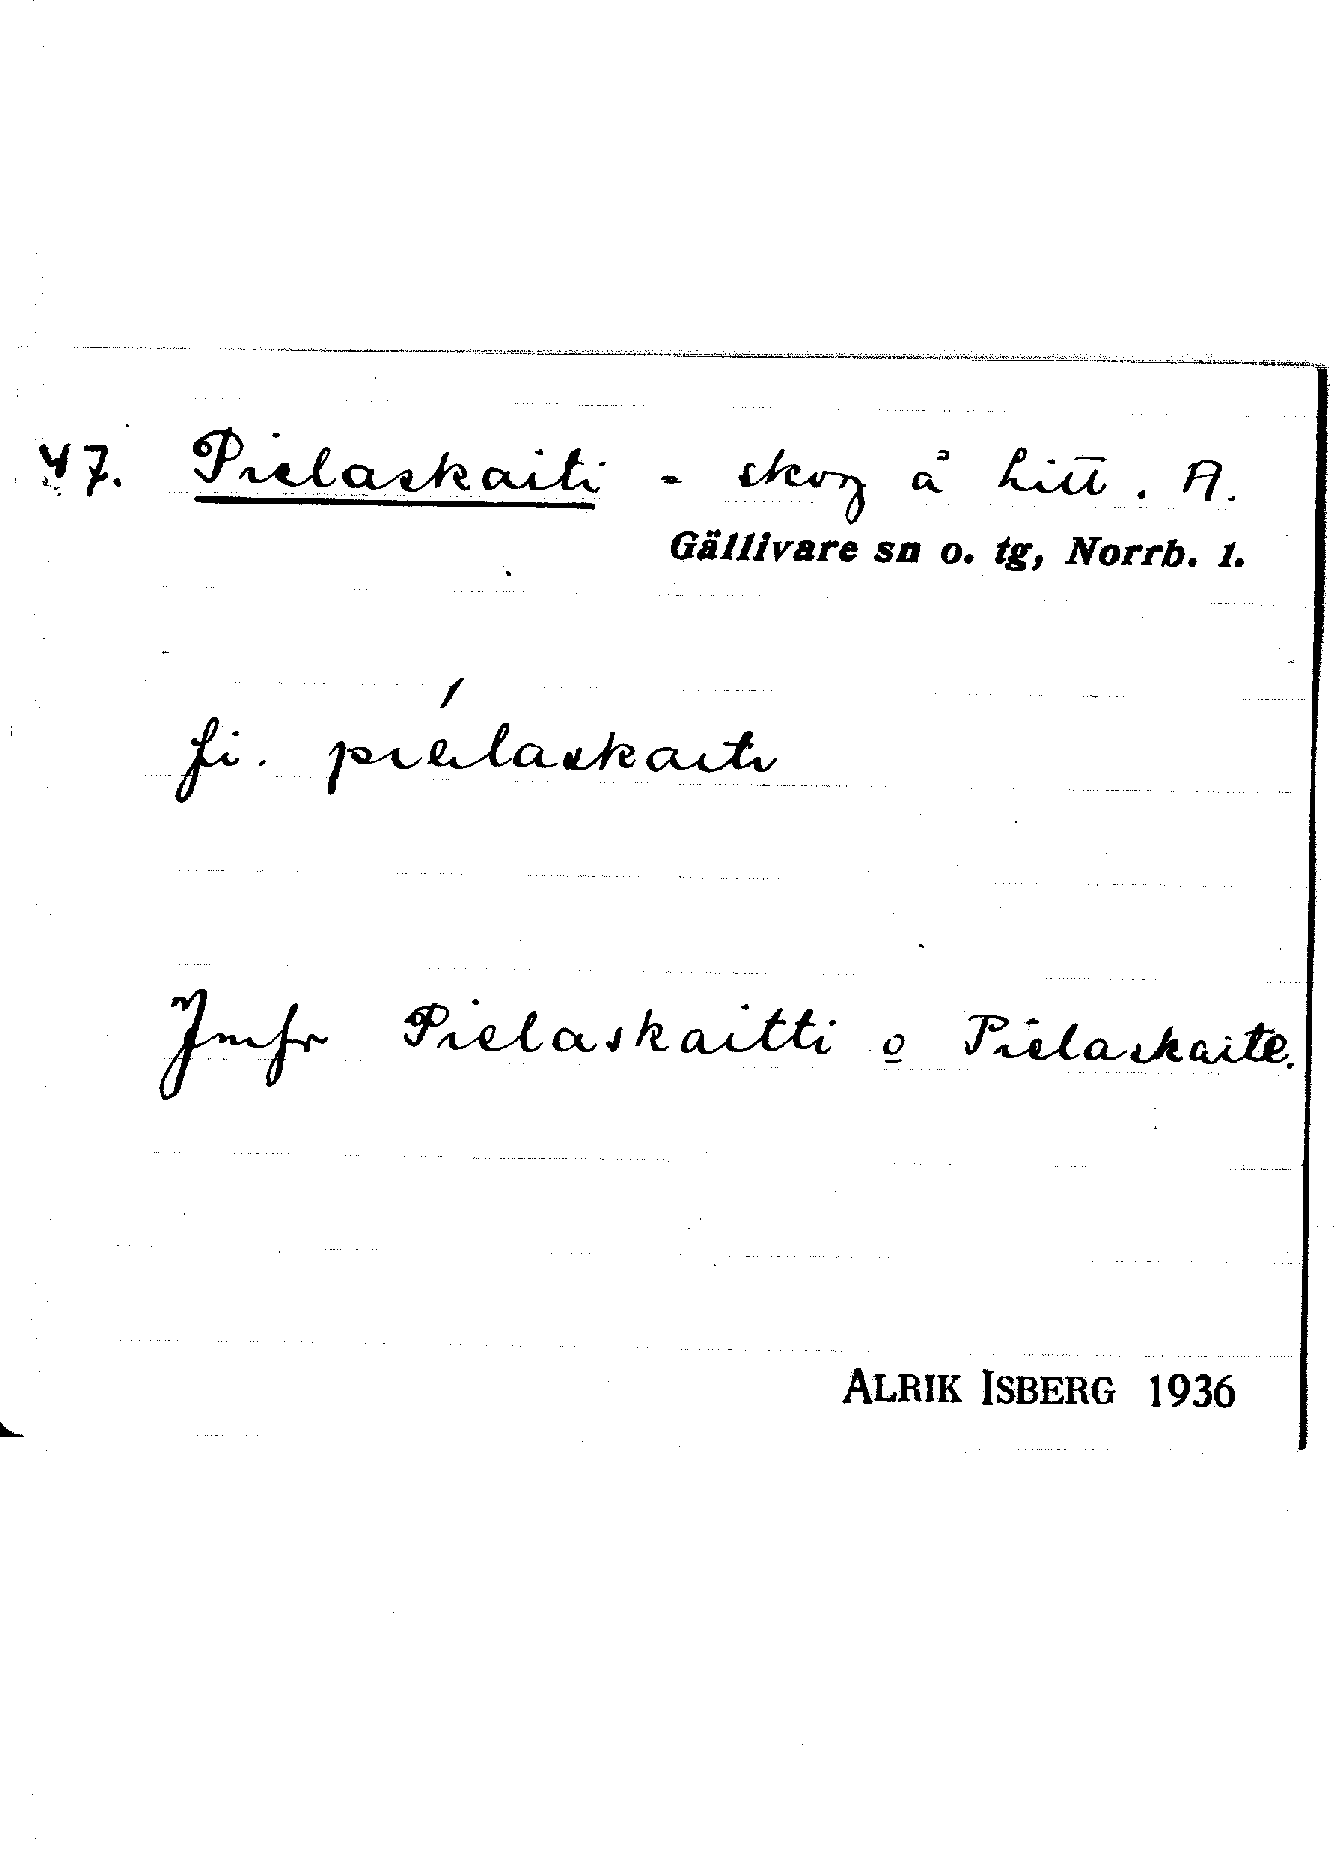 47. Pielaskaiti - skog å Litt. A.
Gällivare sn o. tg, Norrb. 1.
fi. píelaskaiti
Jmfr Pielaskaitti o Pielaskaite.
ALRIK ISBERG 1936